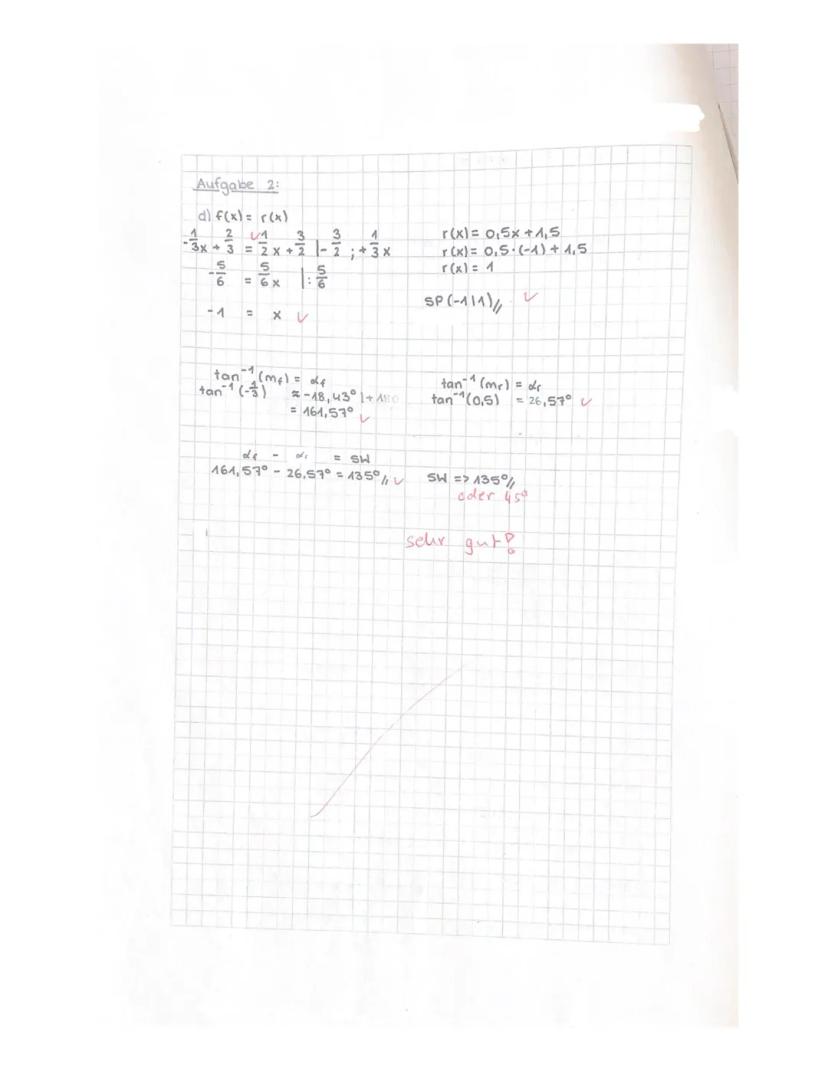 Aufgabe 2:
d) f(x) = r(x)
-1/3x + 2/3 = 1/2x + 3/2 |-3/2 ; +1/3x
-5/6 = 5/6x |:5/6
-1 = x ✓
r(x) = 0,5x + 1,5
r(x) = 0,5·(-1) + 1,5
r(x) = 1
SP(-1|1)// ✓
tan⁻¹(mf) = αf
tan⁻¹(-1/3) ≈ -18,43° |+180
= 161,57° ✓
tan⁻¹(mr) = αr
tan⁻¹(0,5) = 26,57° ✓
αf - αr = SW
161,57° - 26,57° = 135°// ✓
SW => 135°//
oder 45°
sehr gut!